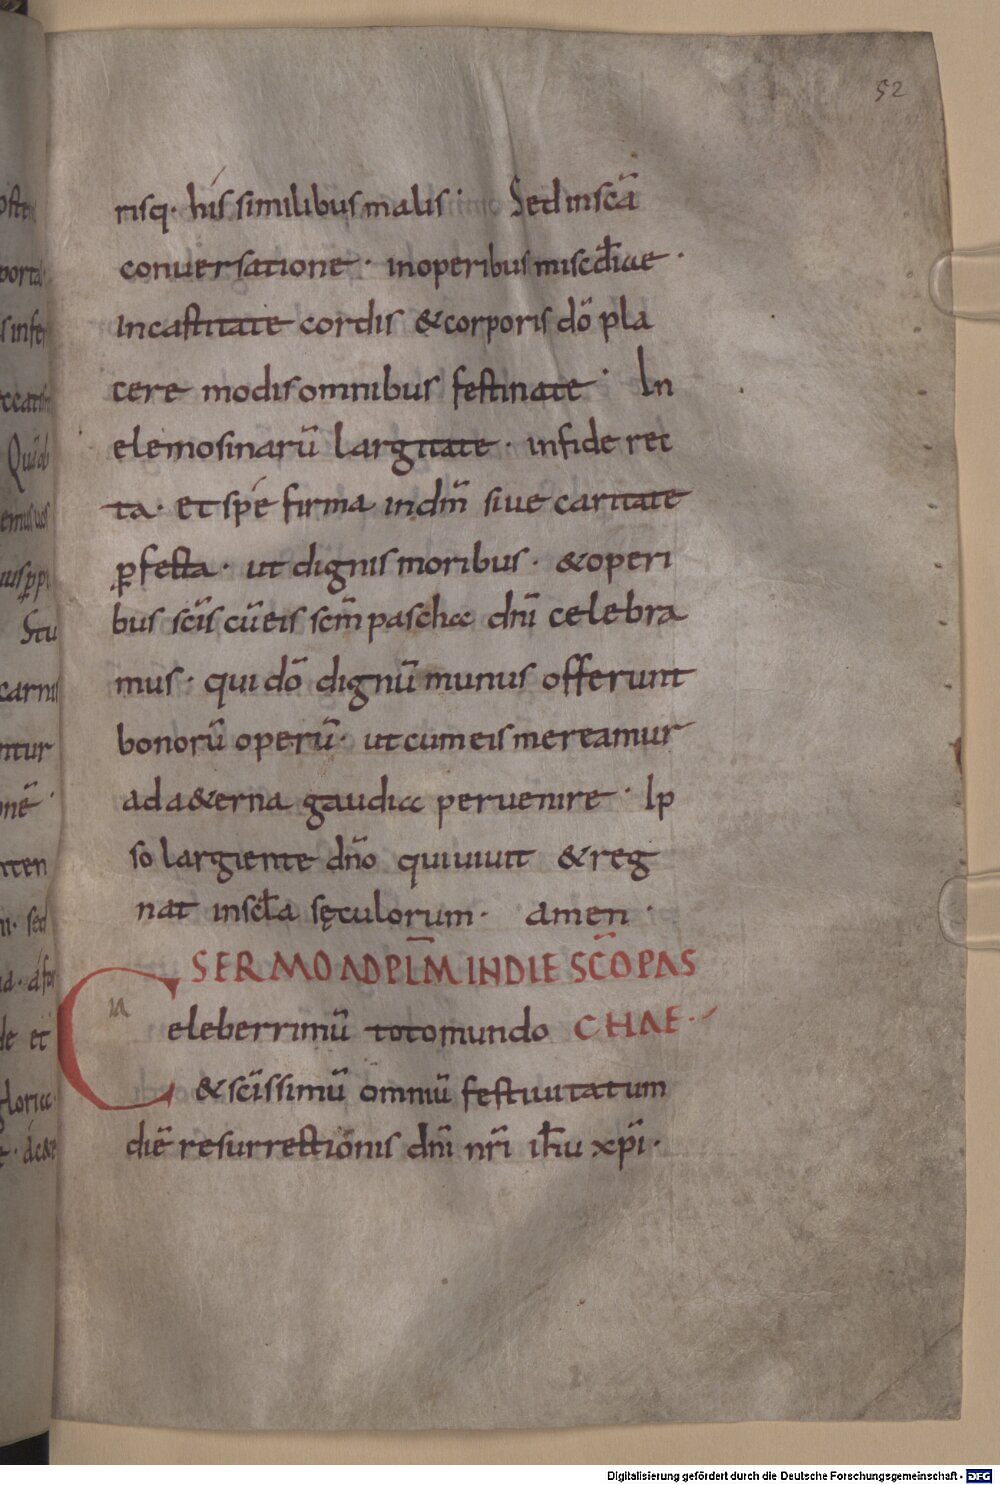 52
risq· his similibus malis· Sed in scā
conuersatione· in operibus miscd̄iae·
In castitate cordis & corporis dō pla
cere modis omnibus festinate· In
elemosinarū largitate· in fide rec
ta· et spe firma in dm̄ siue caritate
ꝑfecta· ut dignis moribus· & operi
bus scīs cū eis scm̄ pascha dnī celebra
mus· qui dō dignū munus offerunt
bonorū operū· ut cum eis mereamur
ad a&erna gaudia peruenire· Ip
so largiente dn̄o qui uiuit & reg
nat in scl̄a sęculorum· amen·
SERMO AD PLM̄ IN DIE SCŌ PAS
Celeberrimū toto mundo CHAE·
& scīssimū omniū festiuitatum
diē resurrectionis dnī nrī ih̄u xpī·
Digitalisierung gefördert durch die Deutsche Forschungsgemeinschaft - DFG